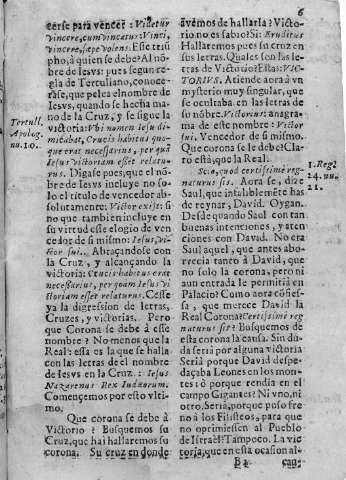 6
cerse para vencer: Videtur
vincere, cum vincatur: Vinci,
vincere, sæpe volens. Esse triũ
pho, à quien se debe? Al nõ
bre de Iesvs: pues segun re-
gla de Tertuliano, conoce-
rase, que pelea el nombre de
Iesvs, quando se hecha ma-
no de la Cruz, y se sigue la
victoria: Vbi nomen Iesu di-
micabat, Crucis habitus quo-
que erat necessarius, per quã
Iesus victoriam esset relatu-
rus. Digase pues, que el nõ-
bre de Iesvs incluye no so-
lo el titulo de vencedor ab-
solutamente: Victor exijt: si
no que tambien incluye en
su virtud esse elogio de ven
cedor de si mismo: Iesus, vi-
ctor sui. Abraçandose con
la Cruz, y alcançando la
victoria: Crucis habitus erat
necessarius, per quam Iesus vi-
ctoriam esset relaturus. Cesse
ya la digression de letras,
Cruzes, y victorias. Pero
que Corona se debe à esse
nombre? No menos que la
Real: essa es la que se halla
con las letras de el nombre
de Iesvs en la Cruz: Iesus
Nazarenus Rex Iudæorum.
Començemos por esto vl-
timo.
Que corona se debe à
Victorio? Busquemos su
Cruz, que hai hallaremos su
corona. Su cruz en donde
Tertull.
Apolog.
nu. 10.
avèmos de hallarla? Victo-
rio no es sabio? Si: Eruditus
Hallaremos pues su cruz en
sus letras. Quales son las le-
tras de Victorio? Estas: VIC-
TORIVS. Atiende aora à vn
mysterio muy singular, que
se ocultaba en las letras de
su nõbre. Victorius: anagra-
ma de este nombre: Victor
sui. Vencedor de si mismo.
Que corona se le debe? Cla-
ro està, que la Real.
Scio, quod certissimè reg-
naturus sis. Aora se, dize
Saul, que infaliblemẽte has
de reynar, David. Oygan.
Desde quando Saul con tan
buenas intenciones, y aten-
ciones con David. No era
Saul aquel, que antes abo-
rrecia tanto à David, que
no solo la corona, pero ni
aun entrada le permitirà en
Palacio? Como aora cõfies-
sa, que merece David la
Real Corona? Certissimè reg-
naturus sis? Busquemos de
esta corona la causa. Sin du-
da serà por alguna victoria
Seria porque David despe-
daçaba Leones en los mon-
tes: ò porque rendia en el
campo Gigantes? Ni vno, ni
otro. Serià, porque puso fre
no a los Filisteos, para que
no oprimiessen al Pueblo
de Israel? Tampoco. La vic
toria, que en esta ocasion al-
1. Reg.
24. nu.
21.
B 2 can-